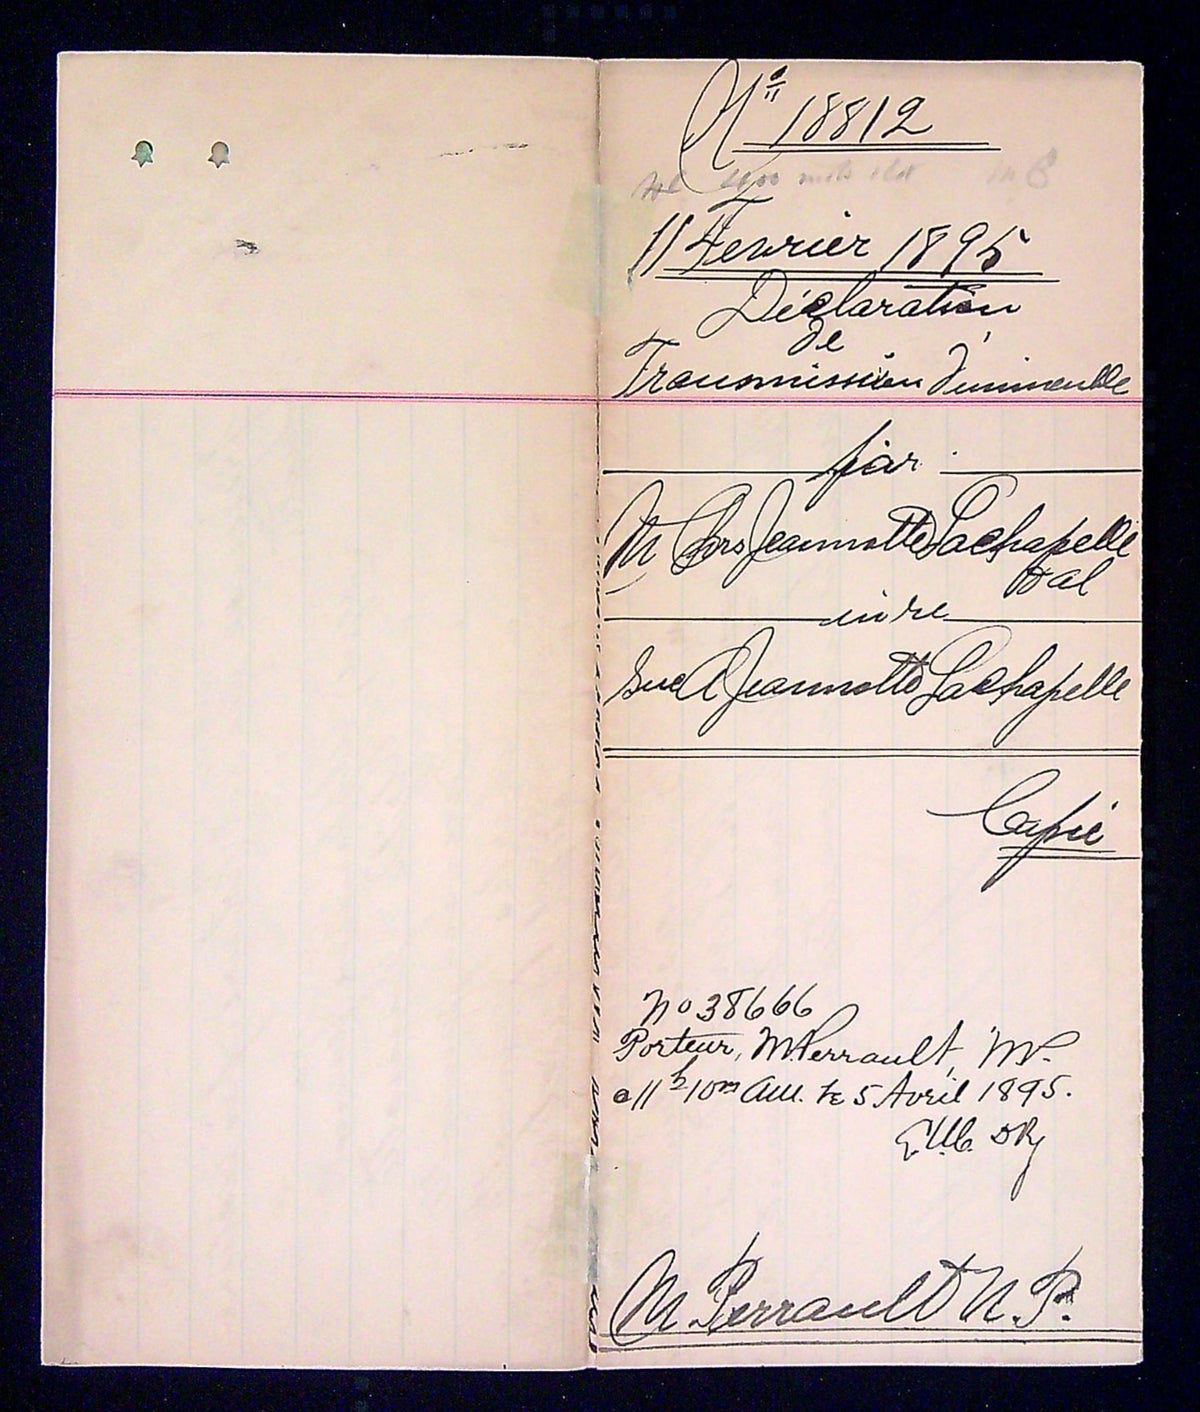 No 18812
11 Fevrier 1895
Déclaration
de
Transmission d'immeuble
par
M Chs Jeannotte Lachapelle
in re
Suc A Jeannotte Lachapelle
Copie
No 38666
Porteur, M. Perrault, NP.
a 11h 10m am. le 5 Avril 1895.
M. Perrault N. P.